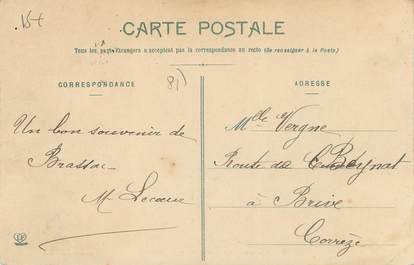 15t
CARTE POSTALE
Tous les pays étrangers n'acceptent pas la correspondance au recto (Se renseigner à la Poste)
CORRESPONDANCE
81)
ADRESSE
Un bon souvenir de
Brassac
M. Lecœur
Mlle Vergne
Route de Beynat
à Brive
Corrèze